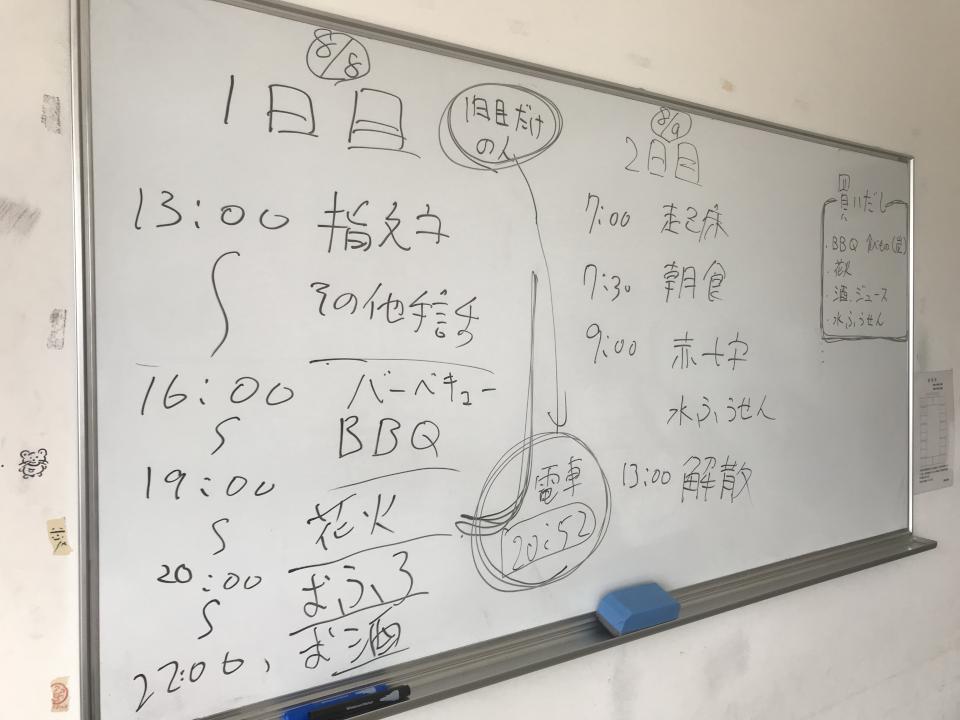 8/8
1日目
13:00 指文字
∫ その他手話
16:00 バーベキュー
∫ BBQ
19:00
∫ 花火
20:00 おふろ
∫
22:00 お酒
1日目だけ
の人
電車
20:52
8/9
2日目
7:00 起床
7:30 朝食
9:00 赤十字
水ふうせん
13:00 解散
買いだし
・BBQ 食べもの(炭)
・花火
・酒、ジュース
・水ふうせん